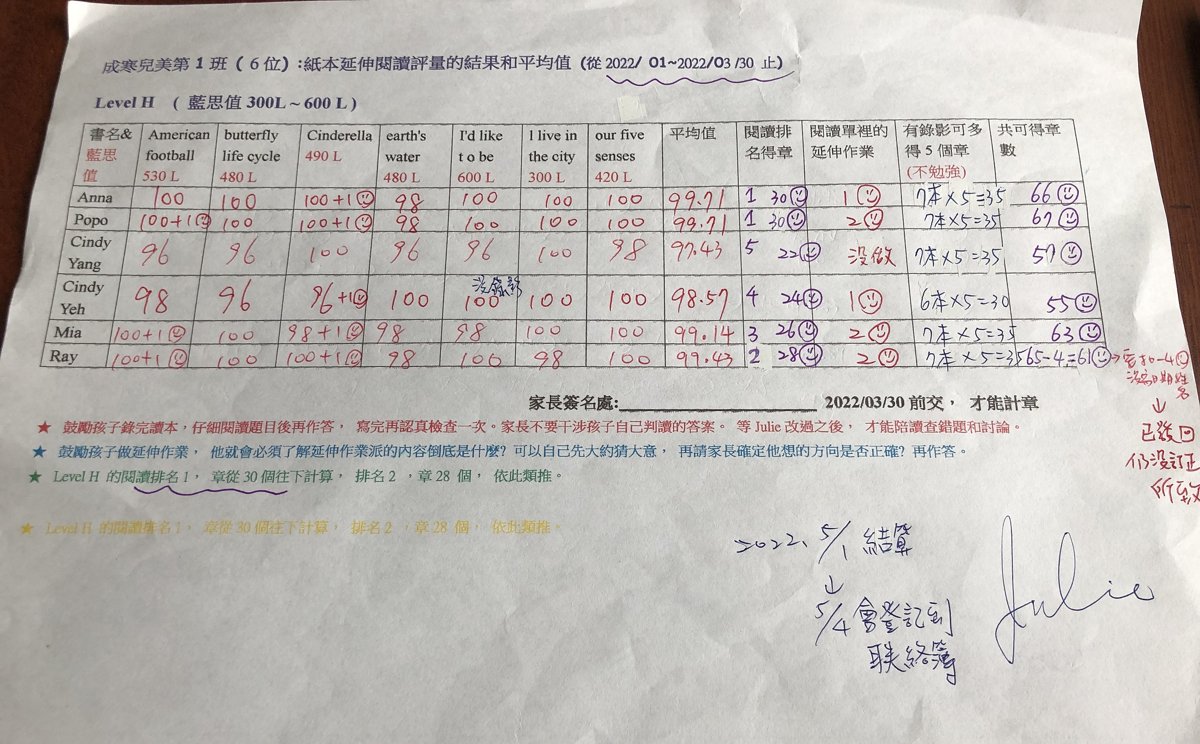 成寒兒美第 1 班 ( 6 位) : 紙本延伸閱讀評量的結果和平均值 (從 2022/ 01~2022/03 /30 止)
Level H ( 藍思值 300L ~ 600 L )
書名& 藍思值 American football 530 L butterfly life cycle 480 L Cinderella 490 L earth's water 480 L I'd like t o be 600 L l live in the city 300 L our five senses 420 L 平均值 閱讀排名得章 閱讀單裡的延伸作業 有錄影可多得 5 個章 (不勉強) 共可得章數
Anna 100 100 100+1 98 100 100 100 99.71 1 30 1 7本×5=35 66
Popo 100+1 100 100+1 98 100 100 100 99.71 1 30 2 7本×5=35 67
Cindy Yang 96 96 100 96 96 100 98 97.43 5 22 沒做 7本×5=35 57
沒錄影
Cindy Yeh 98 96 96+1 100 100 100 100 98.57 4 24 1 6本×5=30 55
Mia 100+1 100 98+1 98 98 100 100 99.14 3 26 2 7本×5=35 63
Ray 100+1 100 100+1 98 100 98 100 99.43 2 28 2 7本×5=35 65-4=61
家長簽名處: 2022/03/30 前交， 才能計章
★ 鼓勵孩子錄完讀本，仔細閱讀題目後再作答， 寫完再認真檢查一次。家長不要干涉孩子自己判讀的答案。 等 Julie 改過之後， 才能陪讀查錯題和討論。
★ 鼓勵孩子做延伸作業， 他就會必須了解延伸作業派的內容倒底是什麼? 可以自己先大約猜大意， 再請家長確定他想的方向是否正確? 再作答。
★ Level H 的閱讀排名 1， 章從 30 個往下計算， 排名 2 ，章 28 個， 依此類推。
★ Level H 的閱讀排名 1， 章從 30 個往下計算， 排名 2 ，章 28 個， 依此類推。
→ 要扣-4
沒寫日期姓名
↓
已發回
仍沒訂正
所致
2022. 5/1 結算
↓
5/4 會登記到
联絡簿
Julie